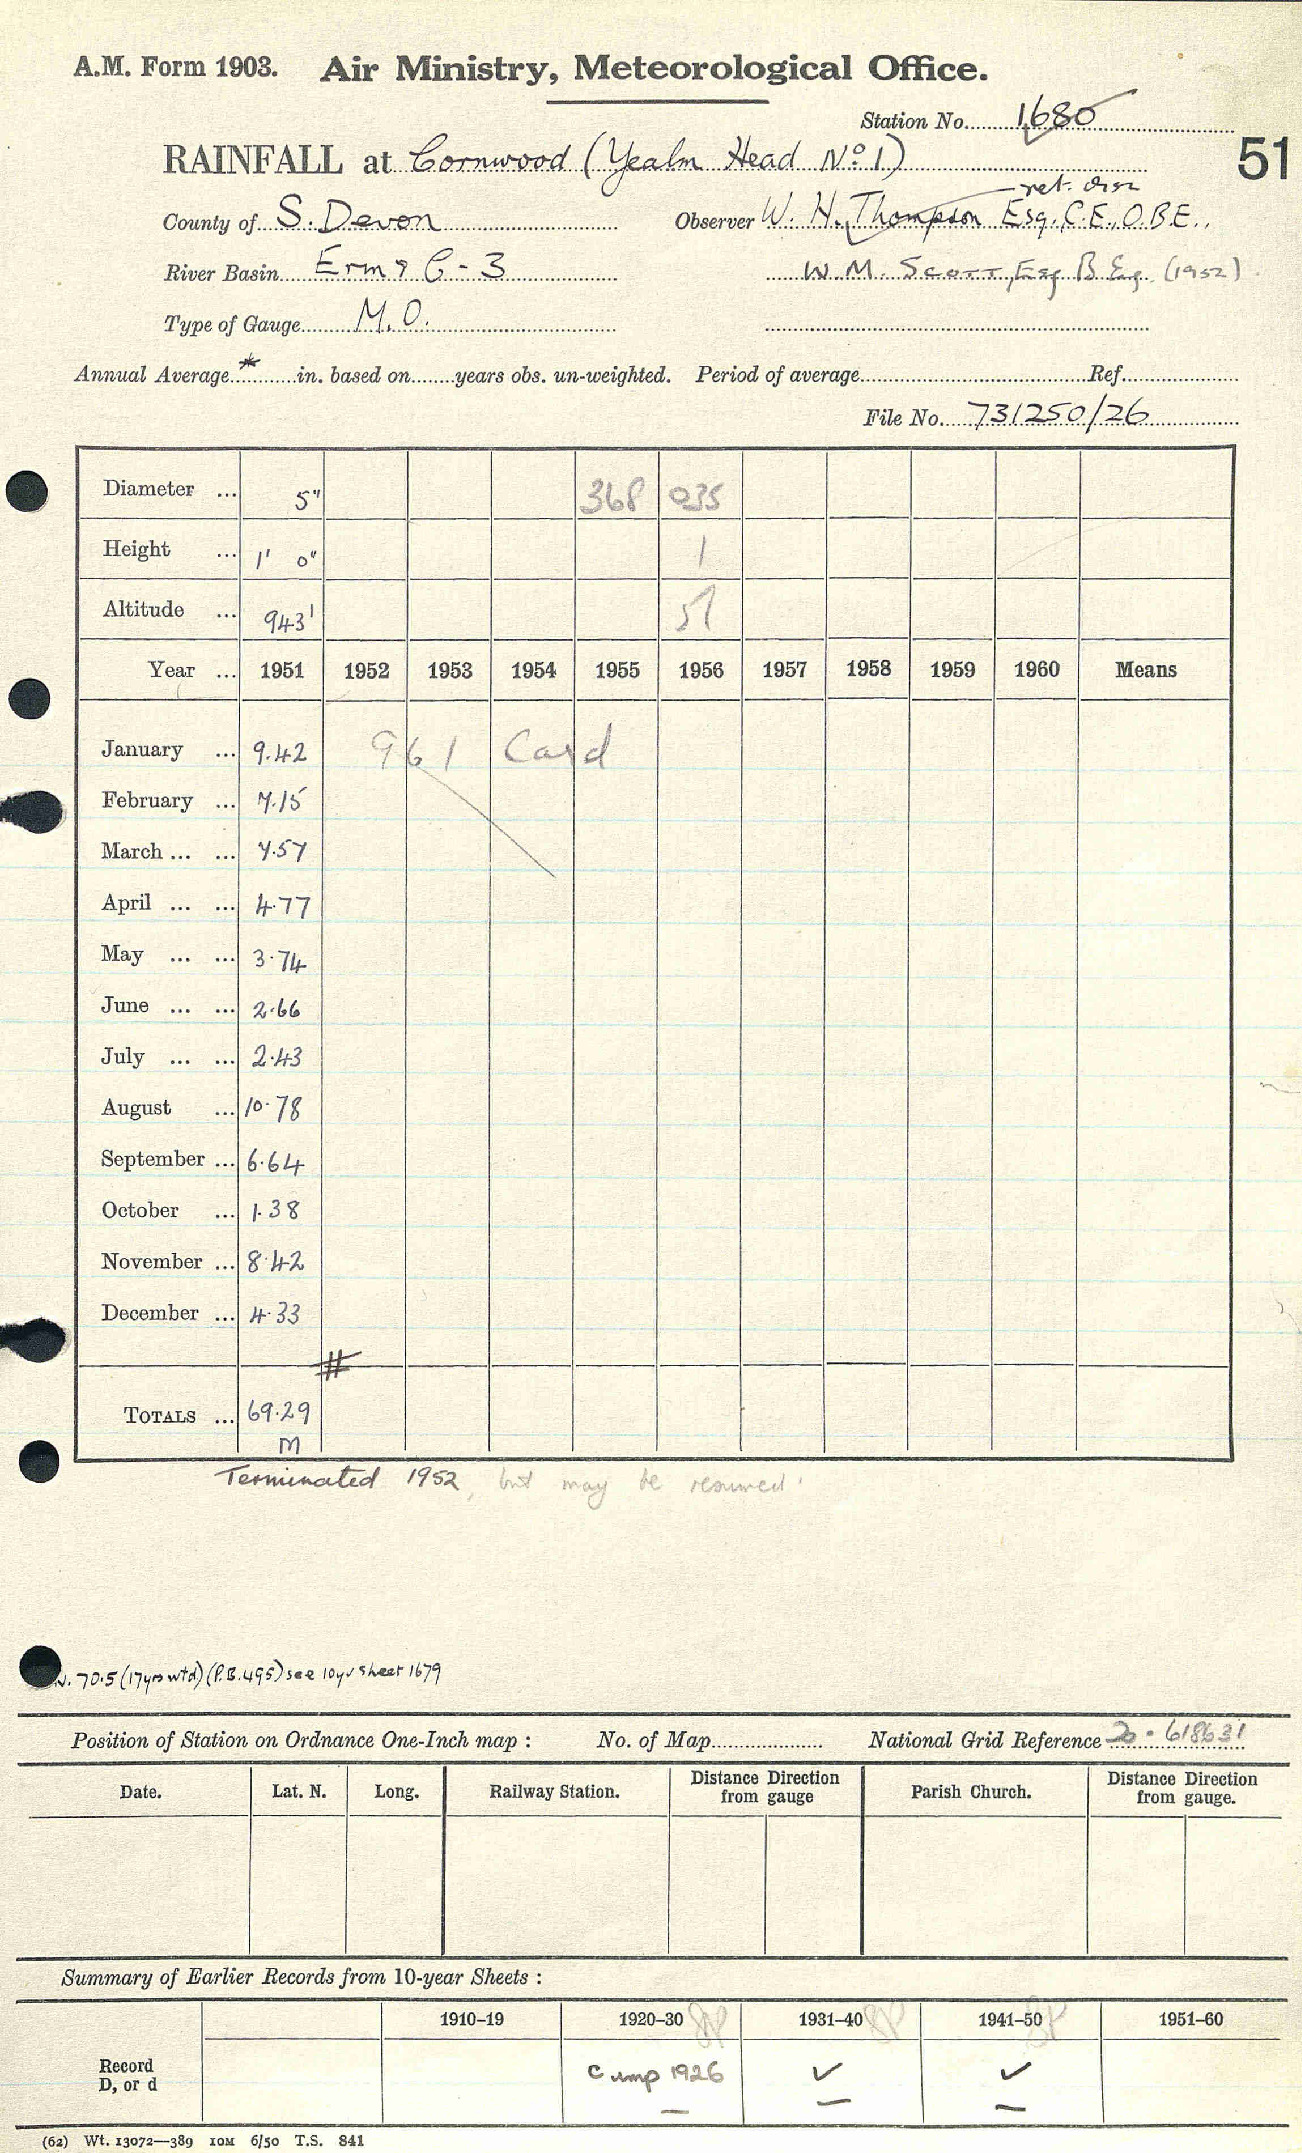 A.M. Form 1903. Air Ministry, Meteorological Office.
Station No. 1680
RAINFALL at Cornwood (Yealm Head No. 1)
51
ret. disc
County of S. Devon Observer W. H. Thompson Esq., C.E., O.B.E.,
River Basin Erme C - 3 W. M. Scott, Esq B Eng. (1952)
Type of Gauge M.O.
Annual Average * in. based on years obs. un-weighted. Period of average Ref.
File No. 731250/26
Diameter ... 5" 368 035
Height ... 1' 0" 1
Altitude ... 943' 51
Year ... 1951 1952 1953 1954 1955 1956 1957 1958 1959 1960 Means
January ... 9.42 961 Card
February ... 7.15
March ... ... 7.57
April ... ... 4.77
May ... ... 3.74
June ... ... 2.66
July ... ... 2.43
August ... 10.78
September ... 6.64
October ... 1.38
November ... 8.42
December ... 4.33
#
TOTALS ... 69.29
M
Terminated 1952, but may be resumed.
70.5 (17yrs wtd) (P.B. 495) see 10yr sheet 1679
Position of Station on Ordnance One-Inch map : No. of Map National Grid Reference 20 - 618631
Date. Lat. N. Long. Railway Station. Distance Direction from gauge Parish Church. Distance Direction from gauge.
Summary of Earlier Records from 10-year Sheets :
1910-19 1920-30 1931-40 1941-50 1951-60
Record
D, or d
Cump 1926 ✓ ✓
(62) Wt. 13072—389 10M 6/50 T.S. 841